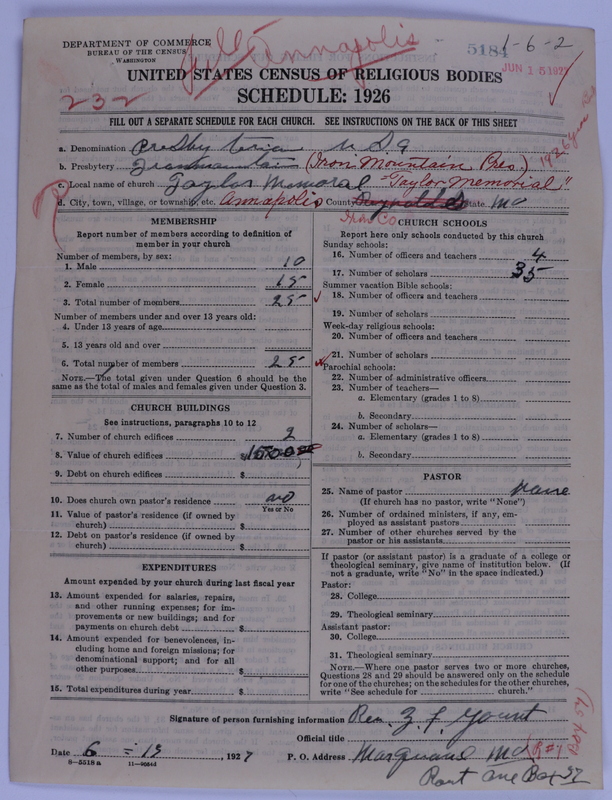 J U Annapolis
DEPARTMENT OF COMMERCE
BUREAU OF THE CENSUS
WASHINGTON
5184
1-6-2
JUN 15 1927
UNITED STATES CENSUS OF RELIGIOUS BODIES
232
SCHEDULE: 1926
FILL OUT A SEPARATE SCHEDULE FOR EACH CHURCH. SEE INSTRUCTIONS ON THE BACK OF THIS SHEET
a. Denomination Presbyterian U S A
b. Presbytery Iron mountain (Iron Mountain Pres)
c. Local name of church Taylor Memoral "Taylor Memorial"
d. City, town, village, or township, etc. Annapolis County Reynolds State. Mo
Iron Co
MEMBERSHIP
Report number of members according to definition of
member in your church
Number of members, by sex:
1. Male 10
2. Female 15
3. Total number of members 25
Number of members under and over 13 years old:
4. Under 13 years of age
5. 13 years old and over
6. Total number of members 25
NOTE.—The total given under Question 6 should be the
same as the total of males and females given under Question 3.
CHURCH BUILDINGS
See instructions, paragraphs 10 to 12
7. Number of church edifices 2
8. Value of church edifices $ 1500
9. Debt on church edifices $
10. Does church own pastor's residence no
Yes or No
11. Value of pastor's residence (if owned by
church) $
12. Debt on pastor's residence (if owned by
church) $
EXPENDITURES
Amount expended by your church during last fiscal year
13. Amount expended for salaries, repairs,
and other running expenses; for im-
provements or new buildings; and for
payments on church debt $
14. Amount expended for benevolences, in-
cluding home and foreign missions; for
denominational support; and for all
other purposes $
15. Total expenditures during year $
CHURCH SCHOOLS
Report here only schools conducted by this church
Sunday schools:
16. Number of officers and teachers 4
17. Number of scholars 35
Summer vacation Bible schools:
18. Number of officers and teachers
19. Number of scholars
Week-day religious schools:
20. Number of officers and teachers
21. Number of scholars
Parochial schools:
22. Number of administrative officers
23. Number of teachers—
a. Elementary (grades 1 to 8)
b. Secondary
24. Number of scholars—
a. Elementary (grades 1 to 8)
b. Secondary
PASTOR
25. Name of pastor none
(If church has no pastor, write "None")
26. Number of ordained ministers, if any, em-
ployed as assistant pastors
27. Number of other churches served by the
pastor or his assistants
If pastor (or assistant pastor) is a graduate of a college or
theological seminary, give name of institution below. (If
not a graduate, write "No" in the space indicated.)
Pastor:
28. College
29. Theological seminary
Assistant pastor:
30. College
31. Theological seminary
NOTE.—Where one pastor serves two or more churches,
Questions 28 and 29 should be answered only on the schedule
for one of the churches; on the schedules for the other churches,
write "See schedule for church."
Signature of person furnishing information Rev. Z. F. Yount
Official title
Date 6 - 13, 1927 P. O. Address Marquand Mo R#1
8-5518 a
Rout one Box 57